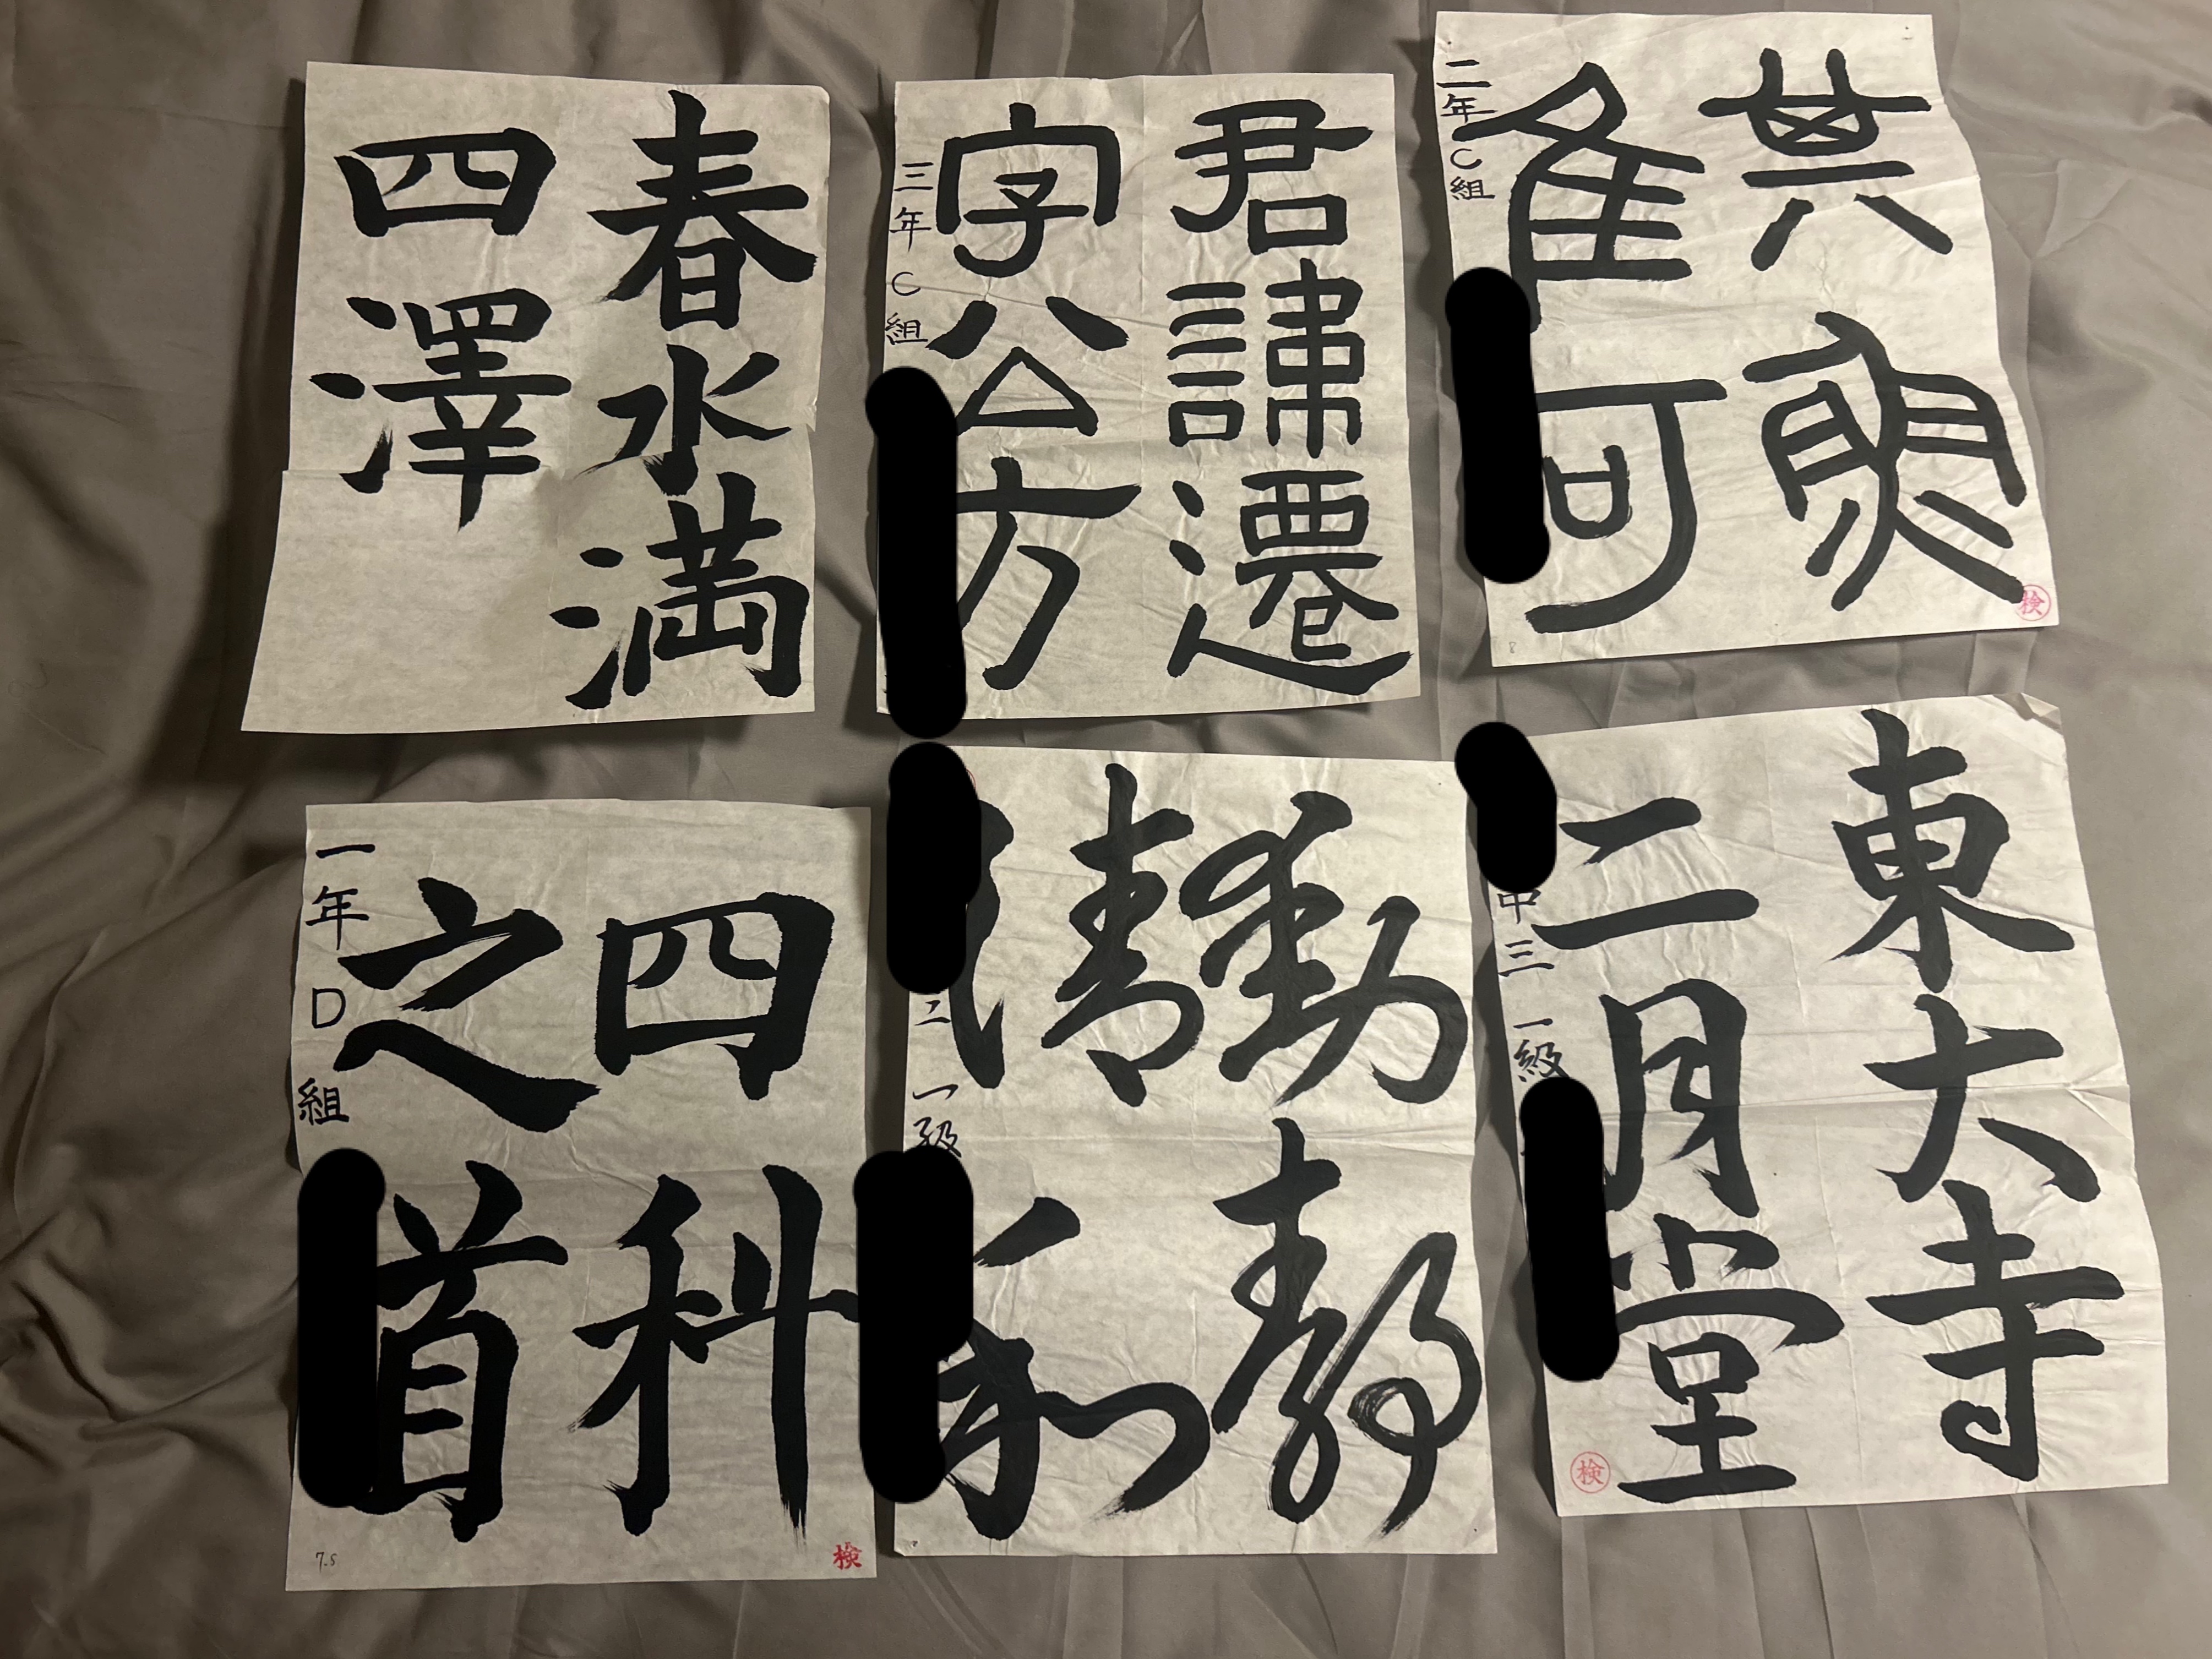 春水満
四澤
君諱遷
字公方
三年C組
其魚
隹可
二年C組
検
8
四科
之首
一年D組
7.5
検
動静
清和
二 一級
東大寺
二月堂
中三 一級
検